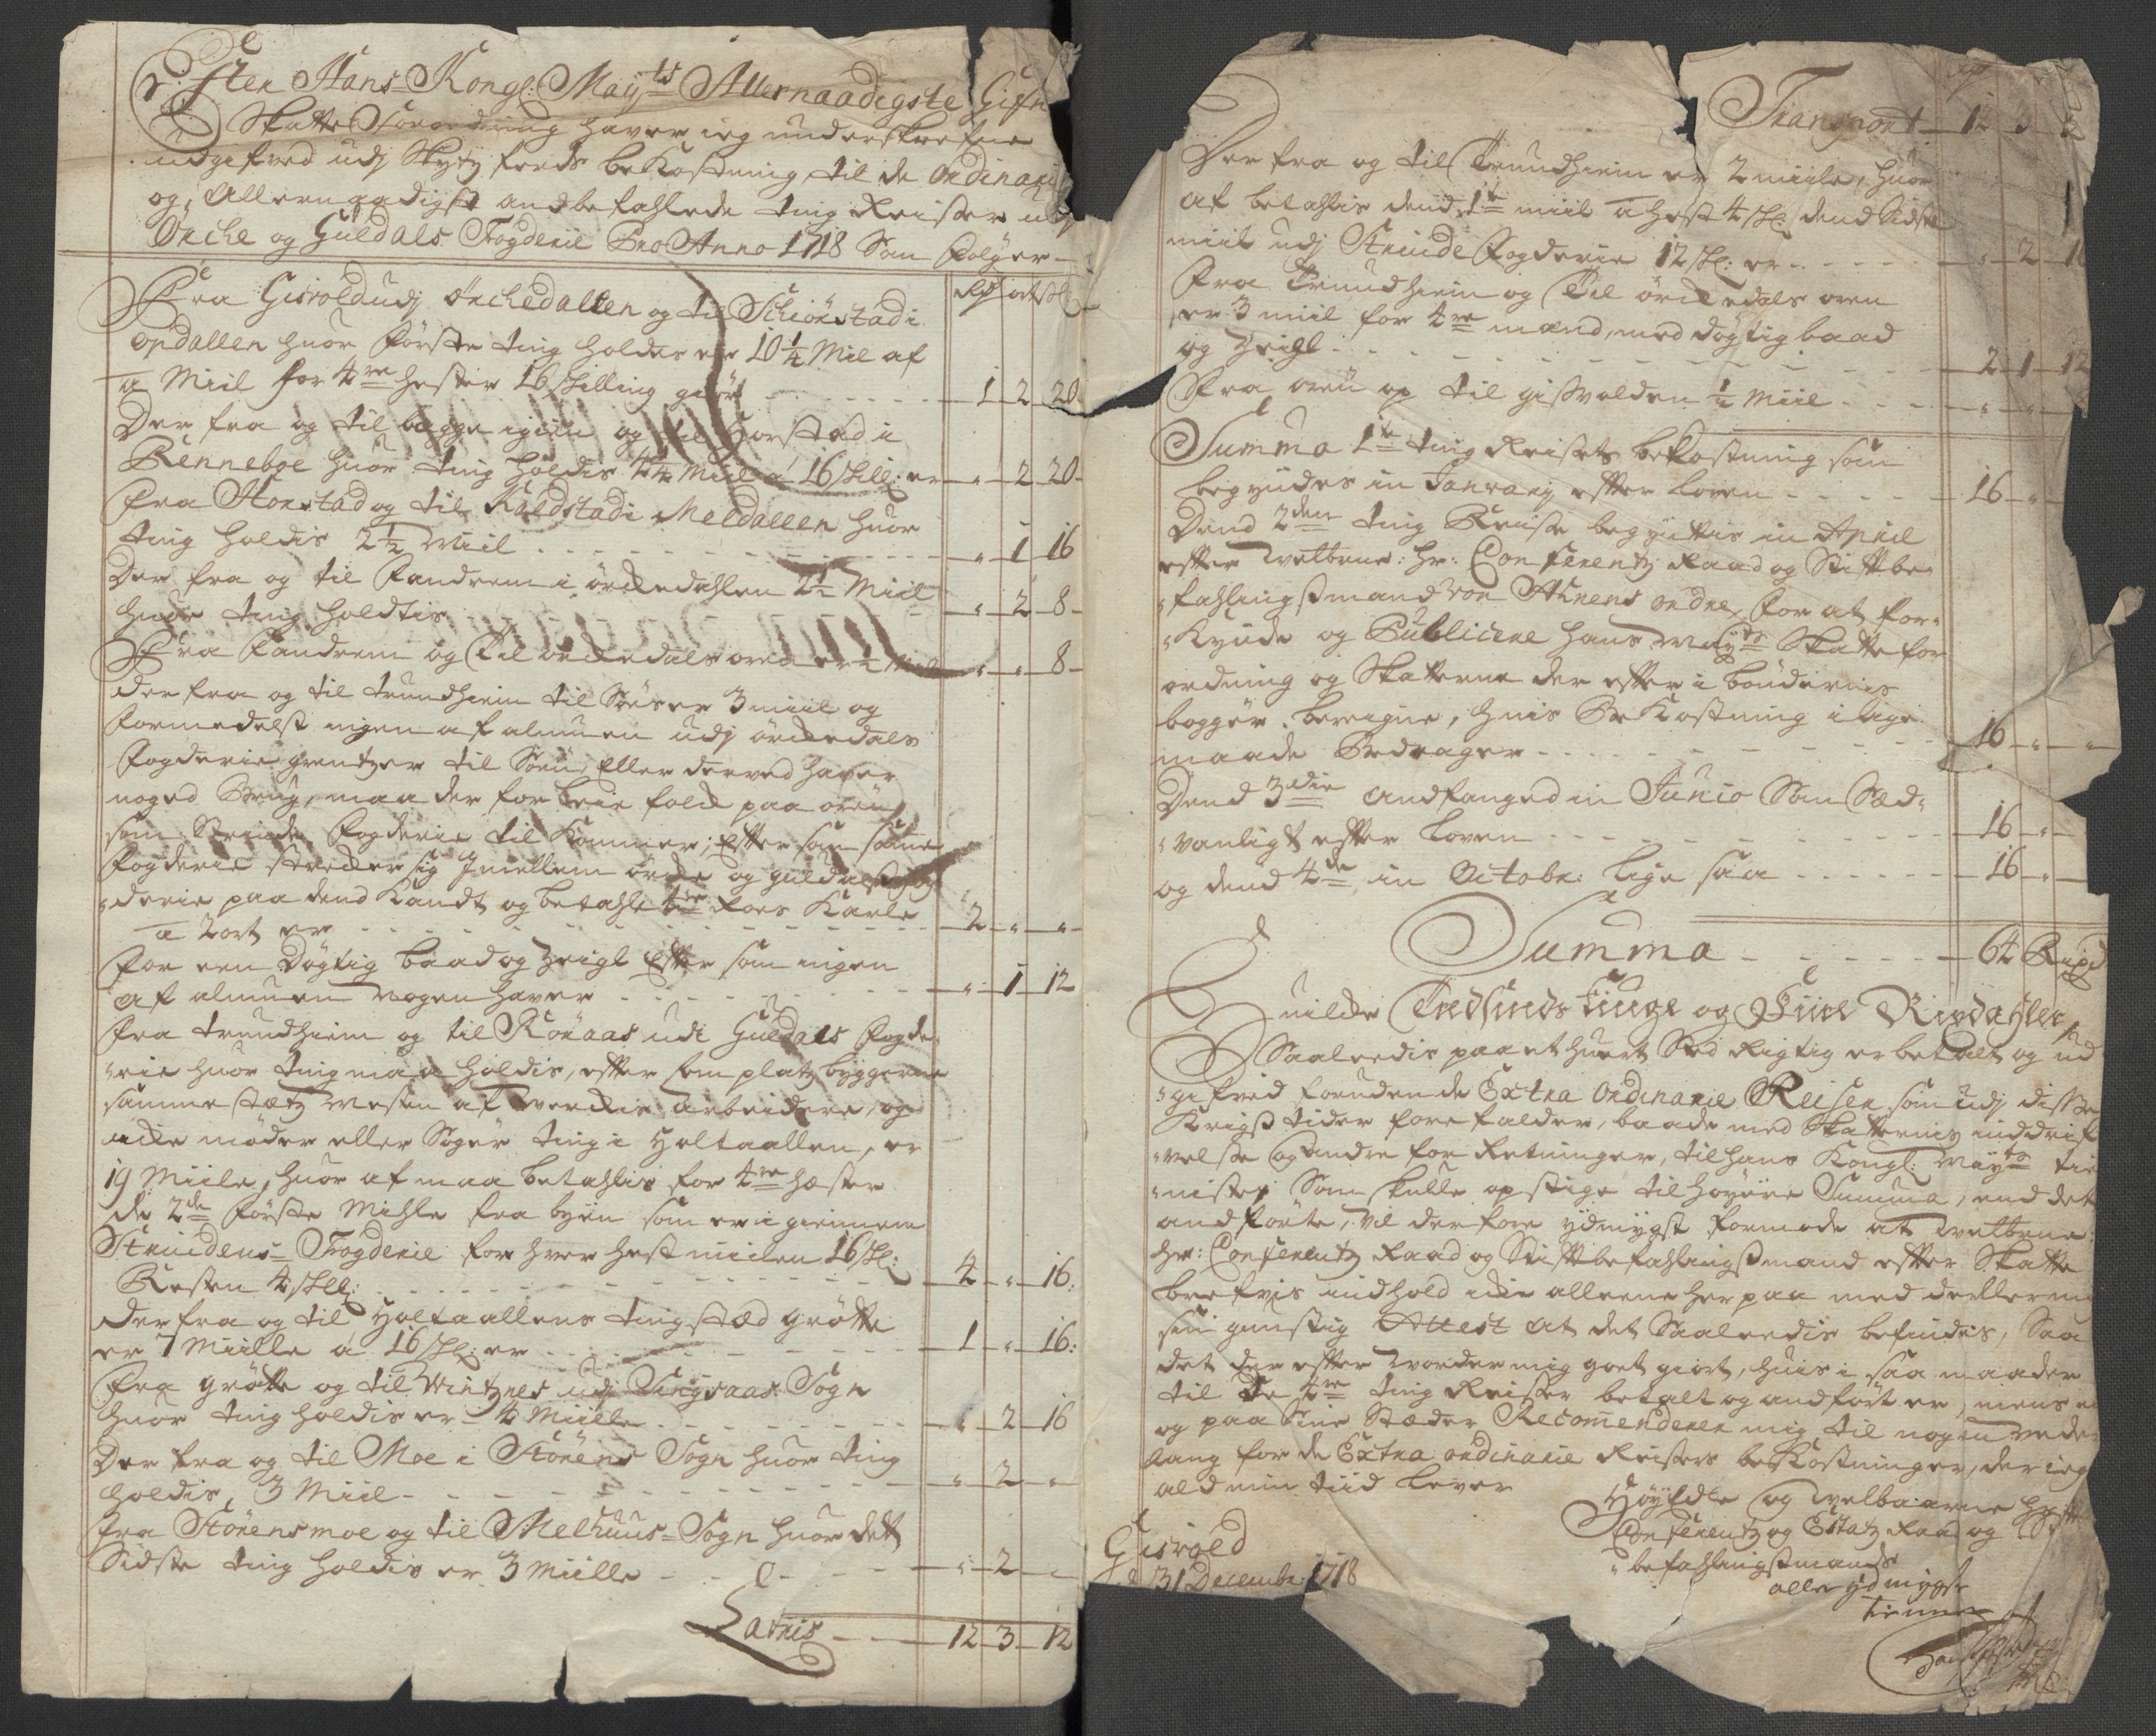 Efter Hans Kongl: Mayts Allernaadigste
Skatte Forordning haver ieg underskrefne
udgifved udj Skyty ferds bekostning til de ordinari
og, Allernaadigst andbefahlede ting Reisser udj
Örche og Guldals Fogderie Pro Anno 1718 Som Følger
Rd ort s
Fra Gisvold udj örchedallen og til Schiörstad i
Opdallen huor Förste ting holdes er 10 1/4 Mil af
a Miil for 4re hester 16 skilling giör 1 2 20
Der fra og til bagge igien og til Horstad i
Rennebye huor ting holdis 4 1/4 Miil a 16 skill: er " 2 20
Fra Horstad og til Kaldstad i Meldallen huor
ting holdis 2 1/2 Miil " 1 16
Der fra og til Fandrem i örckedahlen 2 1/2 Miil
huor ting holdtis " 2 8
Fra Fandrem og til örckedals oren er 1/2 Miil " " 8
der fra og til trundhiem til Söes er 3 miil og
formedelst ingen af almuen udj örckedals
Fogderie grentzer til Söen, Eller derved haver
noged brug, maa der for leie folck paa oren
som Strinde Fogderie til kommer; Efter som samme
Fogderie strecker sig Imellem örcke og guldals fog-
derie paa dend Kandt og betahle 4re Roers Karle
a 2 ort er 2 " "
for een dögtig baad og Zeigl Efter som ingen
af almuen nogen haver " 1 12
fra trundhiem og til Röraas udi Guldals Fogde-
rie huor ting maa holdis, efter som platz byggerne
samme stætz mesten af Werckis arbeidere, og
icke möder eller Söger ting i Holtaallen, er
19 Miile, huor af maa betahlis for 4re hester
de 2de förste Mihle fra byen som er igiennem
Strindens Fogderie for hver hest miilen 16 skl:
Resten 4 skll: 4 " 16
der fra og til Holtaallens tingstæd grötte
er 7 Miille a 16 skl: er 1 " 16
fra grötte og til Wintznes udj Singsaas Sogn
huor ting holdis er 4 Miille " 2 16
Der fra og til Moe i Störens Sogn huor ting
holdis, 3 Miil " 2 "
fra Störensmoe og til Melhuus Sogn huor dett
Sidste ting holdis er 3 Miille " 2
Latris 12 3 12
Transport 12 3 12
Der fra og til Trundhiem er 2 miile, huor
af betahlis dend 1te miil a hest 4 skl: dend Sidste
miil udj Strinde Fogderie 12 skl: er " 2 1
fra Trundhiem og til örckedals oren
er 3 miil for 4re mænd, med dögtig baad
og Zeigl 2 1 12
fra oren op til gissvolden 1/2 Miil " "
Summa 1te ting Reisets bekostning som
begyndes in Januarij efter loven 16 "
Dend 2den ting Reise begyntis in April
efter Welborne: Hr: Conferentz Raad og Stiftbe-
fahlingssmand von Ahnens ordre, for at for-
Kynde og Publicere Hans Mayts Skatte for
ordning og Skatterne der efter i böndernis
bogger beregne, huis Bekostning i lige
maade Bedrager 16 " "
Dend 3die andfanged in Junio Som Sæd-
vanligt efter loven 16 "
og dend 4de in Octobr: lige saa 16 "
Summa 64 Rixd
huilcke Tredsinds tiuge og Fiire Rixdahler
Saaledis paa et huert Sted Rigtig er betalt og ud
gifved foruden de Extra ordinarie Reiser som udj disse
Krigss tider fore falder, baade med Skatternis inddrif
velse og andre for Retninger, til Hans Kongl: Mayts tie
niste; Som skulle opstige til höyere Summa, end det
andförte, vil derfore ydmygst formode at Welborne
Hr: Conferentz Raad og Stiftbefahlingssmand efter Skatte
brefvis indhold icke alleene her paa meddeeller mig
sin gunstig Attest at det Saaledis befindes, Saa
det der efter worder mig got giort, huis i saa maader
til de 4re ting Reisser betalt og andfört er, mens
og paa Sine Stæder Recommenderer mig til nogen veder
lang for de Extra ordinarie Reisers bekostninger, der ieg
ald min tiid lever
Höyedle og Welbaarne Hr
Conferentz og Estatz Raad og
befahlingssmands
aller ydmygste
tienner
Gisvold
d 31 December 1718